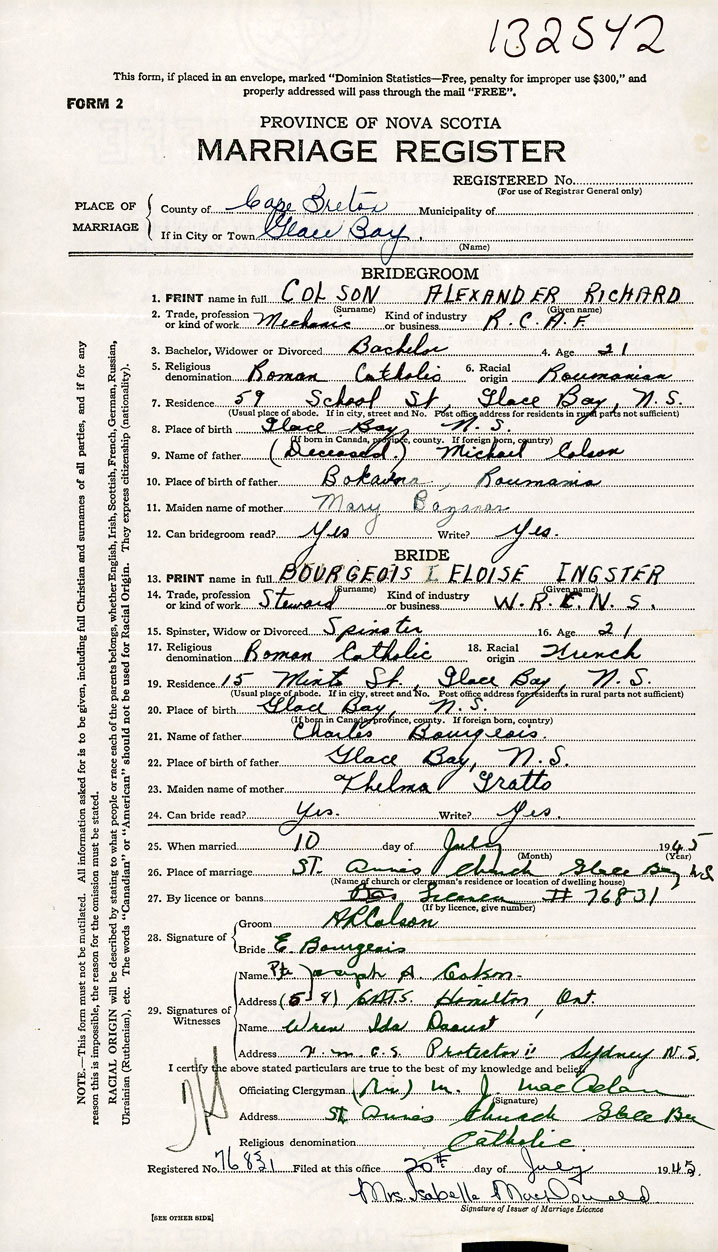 132542
This form, if placed in an envelope, marked "Dominion Statistics—Free, penalty for improper use $300," and
properly addressed will pass through the mail "FREE".
FORM 2
PROVINCE OF NOVA SCOTIA
MARRIAGE REGISTER
REGISTERED No.
(For use of Registrar General only)
PLACE OF MARRIAGE
County of Cape Breton Municipality of
If in City or Town Glace Bay.
(Name)
BRIDEGROOM
1. PRINT name in full COLSON ALEXANDER RICHARD
(Surname) (Given name)
2. Trade, profession or kind of work Mechanic Kind of industry or business R.C.A.F.
3. Bachelor, Widower or Divorced Bachelor 4. Age 21
5. Religious denomination Roman Catholic 6. Racial origin Roumanian
7. Residence 59 School St., Glace Bay, N.S.
(Usual place of abode. If in city, street and No. Post office address for residents in rural parts not sufficient)
8. Place of birth Glace Bay, N.S.
(If born in Canada, province, county. If foreign born, country)
9. Name of father (Deceased.) Michael Colson
10. Place of birth of father Roumania
11. Maiden name of mother Mary
12. Can bridegroom read? Yes Write? Yes.
BRIDE
13. PRINT name in full BOURGEOIS ELOISE INGSTER
(Surname) (Given name)
14. Trade, profession or kind of work Steward Kind of industry or business W.R.E.N.S.
15. Spinster, Widow or Divorced Spinster 16. Age 21
17. Religious denomination Roman Catholic 18. Racial origin French
19. Residence 15 Minto St., Glace Bay, N.S.
(Usual place of abode. If in city, street and No. Post office address for residents in rural parts not sufficient)
20. Place of birth Glace Bay, N.S.
(If born in Canada, province, county. If foreign born, country)
21. Name of father Charles Bourgeois.
22. Place of birth of father Glace Bay, N.S.
23. Maiden name of mother Thelma Gratto
24. Can bride read? Yes. Write? Yes.
25. When married 10 day of July 1945
(Month) (Year)
26. Place of marriage St. Anne's Church Glace Bay N.S
(Name of church or clergyman's residence or location of dwelling house)
27. By licence or banns License # 76831
(If by licence, give number)
28. Signature of
Groom AR Colson
Bride E. Bourgeois
29. Signatures of Witnesses
Name Pte Joseph A.
Address Hamilton, Ont.
Name Wren Ida Daoust
Address H.M.C.S. Protector II Sydney N.S.
I certify the above stated particulars are true to the best of my knowledge and belief.
Officiating Clergyman (Rev.) M. J. MacAdam
(Signature)
Address St Anne's Church Glace Bay
Religious denomination Catholic.
Registered No. 76831 Filed at this office 20th day of July 1945.
Mrs. Isabelle MacDonald.
Signature of Issuer of Marriage Licence
[SEE OTHER SIDE]
NOTE.—This form must not be mutilated. All information asked for is to be given, including full Christian and surnames of all parties, and if for any
reason this is impossible, the reason for the omission must be stated.
RACIAL ORIGIN will be described by stating to what people or race each of the parents belongs, whether English, Irish, Scottish, French, German, Russian,
Ukrainian (Ruthenian), etc. The words "Canadian" or "American" should not be used for Racial Origin. They express citizenship (nationality).